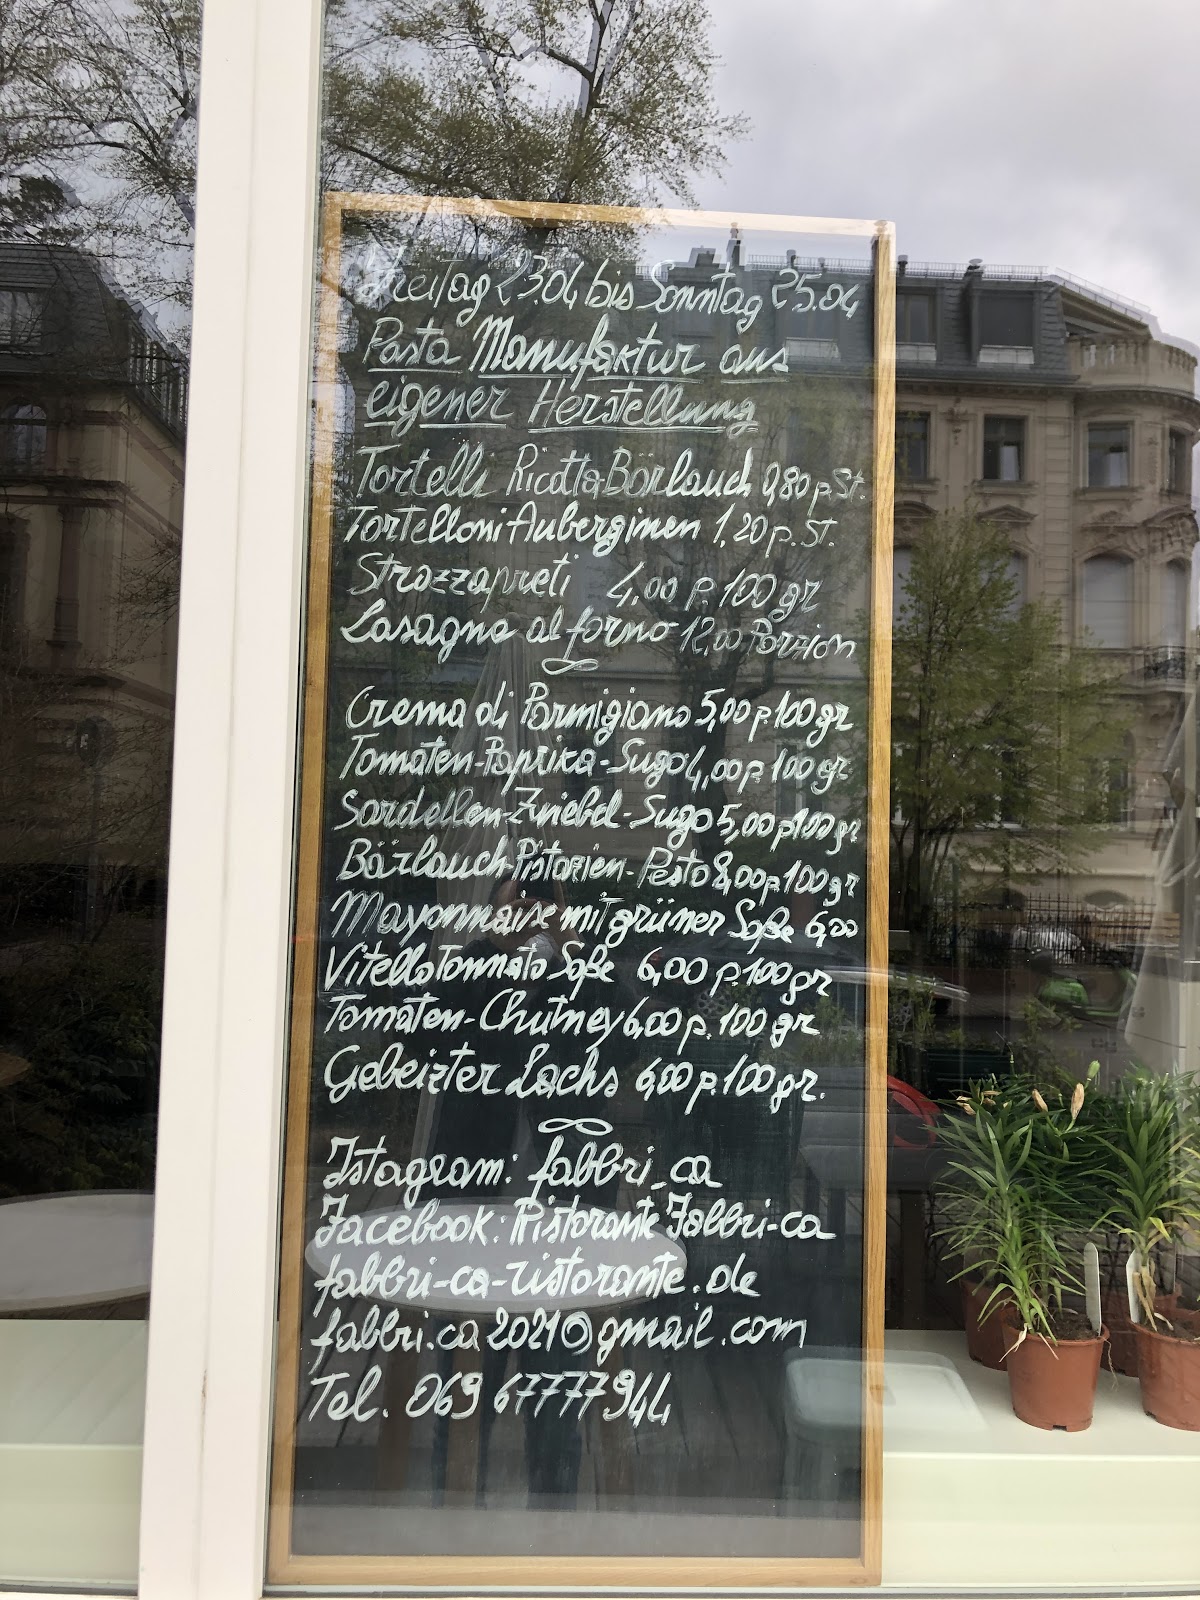 Freitag 23.04 bis Sonntag 25.04
Pasta Manufaktur aus
eigener Herstellung
Tortelli Ricotta Bärlauch 0,80 p. St.
Tortelloni Auberginen 1,20 p. St.
Strozzapreti 4,00 p. 100 gr
Lasagne al forno 12,00 Portion
Crema di Parmigiano 5,00 p. 100 gr
Tomaten-Paprika-Sugo 4,00 p. 100 gr
Sardellen-Zwiebel-Sugo 5,00 p 100 gr
Bärlauch-Pistazien-Pesto 8,00 p. 100 gr
Mayonnaise mit grüner Soße 6,00
Vitello Tonnato Soße 6,00 p. 100 gr
Tomaten-Chutney 6,00 p. 100 gr
Gebeizter Lachs 6,00 p. 100 gr.
Istagram: fabbri_ca
Facebook: Ristorante Fabbri-ca
fabbri-ca-ristorante.de
fabbri.ca2021@gmail.com
Tel. 069 67777944